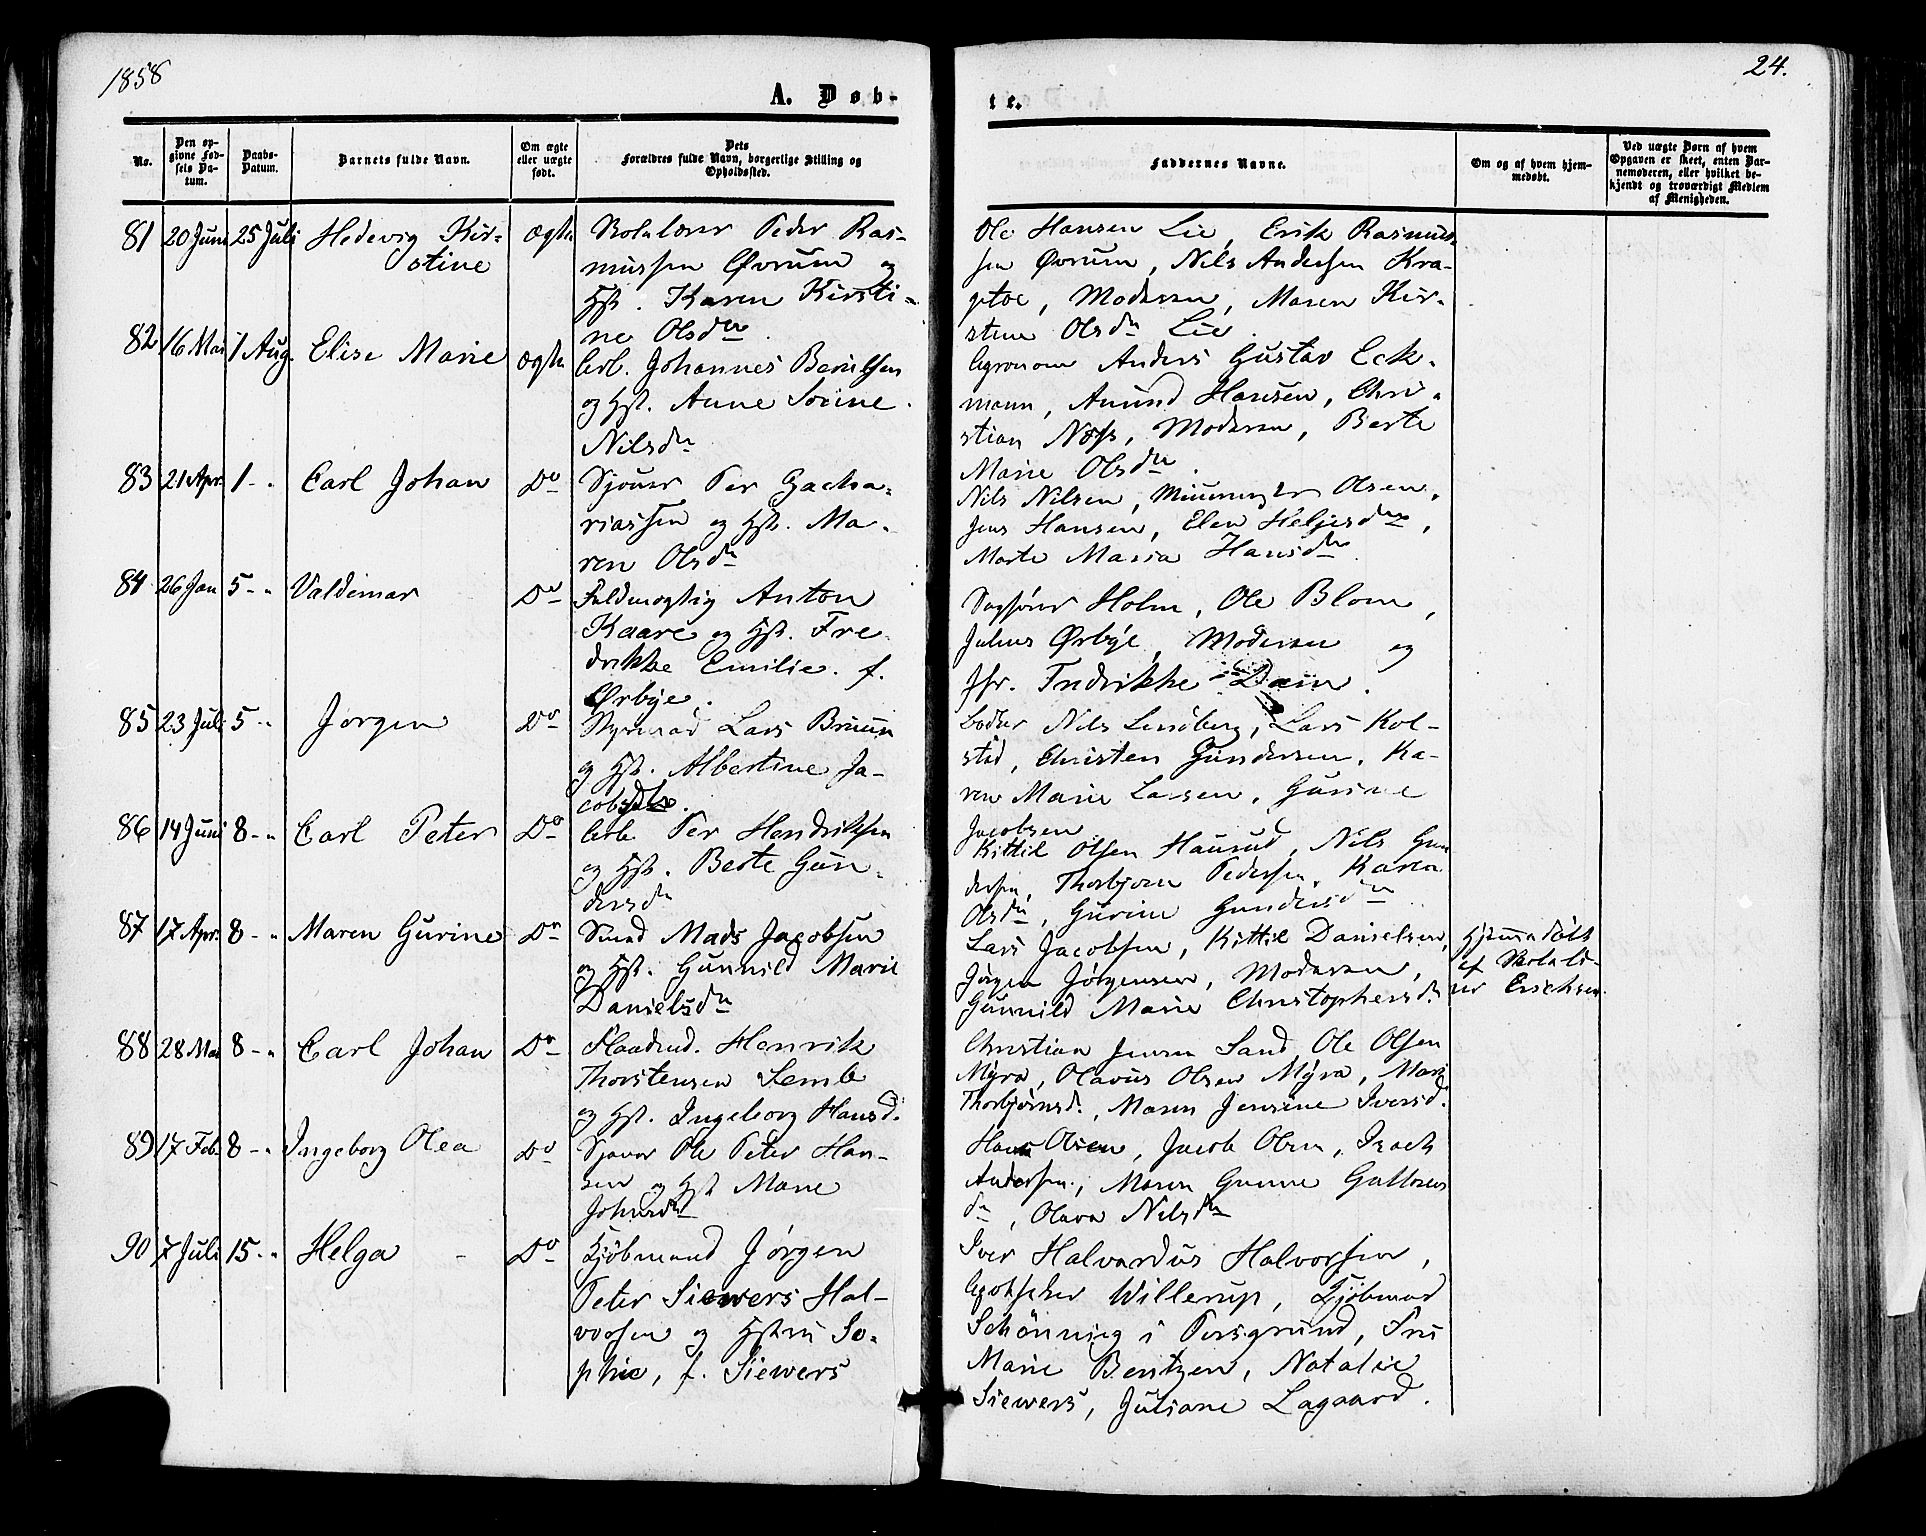 1858
24.
A. Døb-
te.
No.
Den op-
givne Fød-
sels Da-
tum.
Daabs-
Datum.
Barnets fulde Navn.
Om ægte
eller uægte
født.
Dets
Forældres fulde Navn, borgerlige Stilling og
Opholdssted.
Faddernes Navne.
Om og af hvem hjem-
medøbt.
Ved uægte Børn af hvem
Opgaven er skeet, enten Bar-
nemoderen, eller hvilket be-
kjendt og troværdigt Medlem
af Menigheden.
81 20 Juni 25 Juli Hedevig Kir-
stine
Ægte
Skolelærer Peder Ras-
mussen Øvrum og
Hst. Karen Kirsti-
ne Olsdtr
Ole Hansen Lie, Erik Rasmus-
sen Øvrum, Nils Andersen Kra-
getoe, Moderen, Maren Kir-
stine Olsdtr Lie.
82 16 Mai 1 Aug. Elise Marie Ægte
Arb. Johannes Berulfsen
og Hst. Anne Sørine
Nilsdtr
Agronom Anders Gustav Eck-
mann, Amund Hansen, Chri-
stian Næss, Moderen, Berte
Marie Olsdtr.
83 21 Apr. 1 - " Carl Johan Do
Sjouer Per Zacha-
riassen og Hst. Ma-
ren Olsdtr
Nils Nilsen, Olsen,
Jens Hansen, Elen Heljesdtr,
Marte Maria Hansdtr.
84 26 Jan 5 - " Valdemar Do
Fuldmægtig Anton
Kaare og Hst. Fre-
drikke Emilie. f.
Ørbye.
Sagfører Holm, Ole Blom,
Julius Ørbye, Moderen og
Jfr. Fredrikke Dæin.
85 23 Juli 5 - " Jørgen Do
Styrmand Lars Bruun
og Hst. Albertine Ja-
cobsdtr.
Bødker Nils Lundberg, Lars Kol-
stad, Christen Gundersen, Ka-
ren Marie Larsen, Gurine
Jacobsen
86 14 Juni 8 - " Carl Peter Do
Arb. Per Hendriksen
og Hst. Berte Gun-
dersdtr
Kittil Olsen Haurud, Nils Gun
dersen, Thorbjørn Pedersen, Karen
Olsdtr, Gurine Gundersdtr
87 17 Apr. 8 - " Maren Gurine Do
Smed Mads Jacobsen
og Hst. Gunnild Marie
Danielsdtr
Lars Jacobsen, Kittil Danielsen,
Jørgen Jørgensen, Moderen,
Gunnild Marie Christophersd.
Hjemmedøbt
af Skolelæ-
rer Erichsen.
88 28 Mai 8 - " Carl Johan Do
Pladsmd. Henrik
Thorstensen Semb
og Hst. Ingeborg Hansd.
Christian Jensen Sand Ole Olsen
Myra, Olavus Olsen Myra, Mari
Thorbjørnsd., Maren Jensine Iversd.
89 17 Feb. 8 - " Ingeborg Olea Do
Sjøuer Ole Peter Han-
sen og Hst Marie
Johnsdtr
Hans Olsen, Jacob Olsen, Isach
Andersen, Maren Gurine Gullovs
dtr, Olava Nilsdtr
90 7 Juli 15 - " Helga - Do
Kjøbmand Jørgen
Peter Siewers Hal-
vorsen og Hstru So-
phie, f. Siewers
Iver Halvardus Halvorsen,
Apotheker Willerup, Kjøbmand
Schönning i Porsgrund, Fru
Marie Bentzen, Natalie
Siewers, Juliane Lagaard.